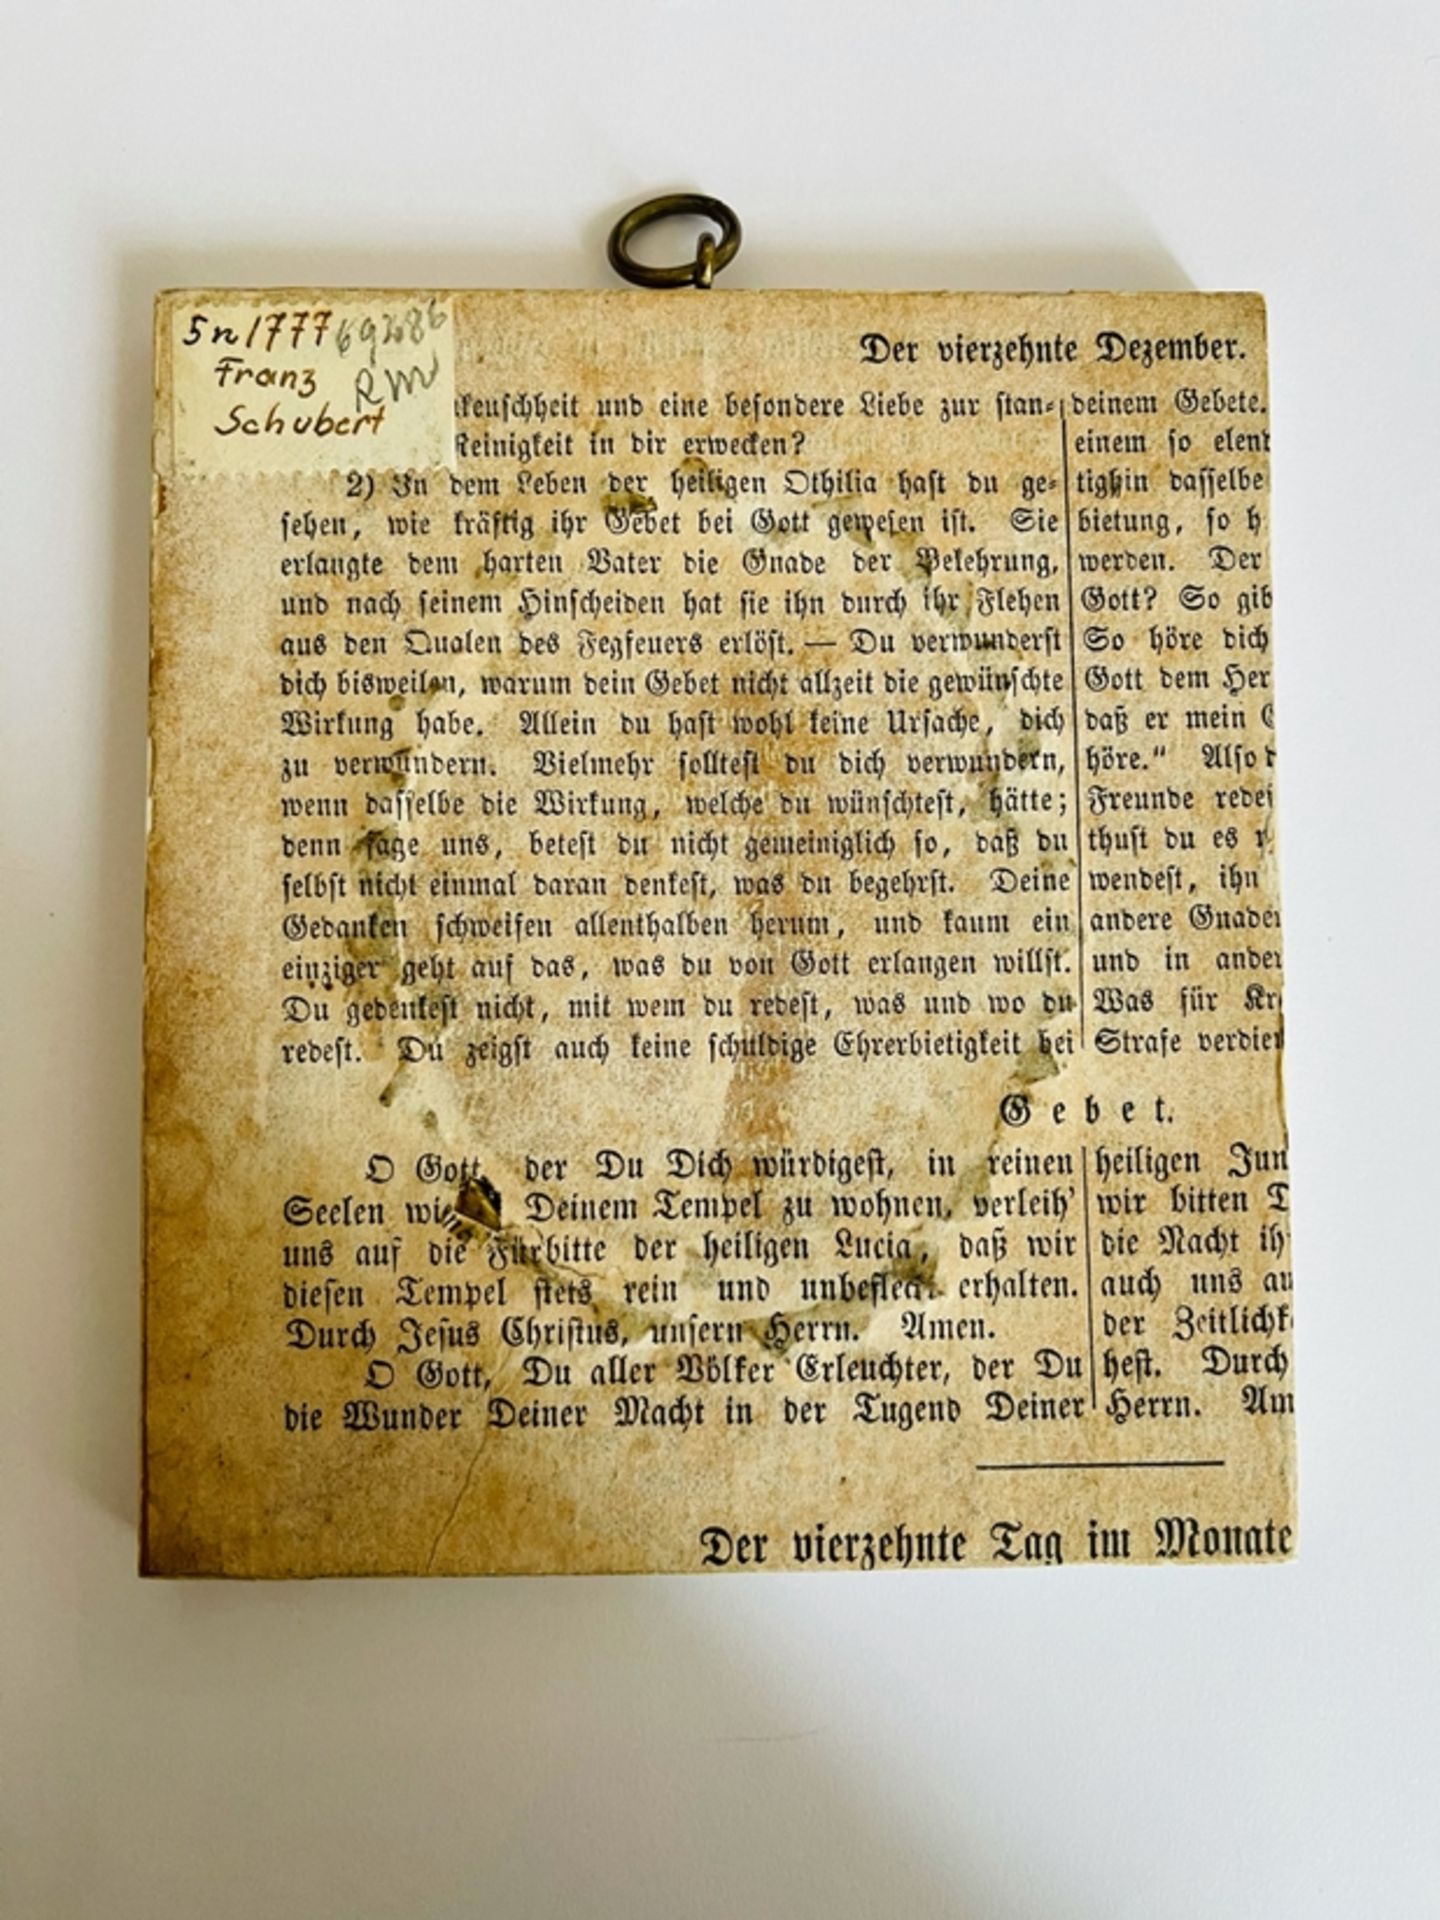 5n1777 69286
Franz RM
Schubert
Der vierzehnte Dezember.
keuschheit und eine besondere Liebe zur stan-
Reinigkeit in dir erwecken?
2) In dem Leben der heiligen Othilia hast du ge-
sehen, wie kräftig ihr Gebet bei Gott gewesen ist. Sie
erlangte dem harten Vater die Gnade der Bekehrung,
und nach seinem Hinscheiden hat sie ihn durch ihr Flehen
aus den Qualen des Fegfeuers erlöst. — Du verwunderst
dich bisweilen, warum dein Gebet nicht allzeit die gewünschte
Wirkung habe. Allein du hast wohl keine Ursache, dich
zu verwundern. Vielmehr solltest du dich verwundern,
wenn dasselbe die Wirkung, welche du wünschtest, hätte;
denn sage uns, betest du nicht gemeiniglich so, daß du
selbst nicht einmal daran denkest, was du begehrst. Deine
Gedanken schweifen allenthalben herum, und kaum ein
einziger geht auf das, was du von Gott erlangen willst.
Du gedenkest nicht, mit wem du redest, was und wo du
redest. Du zeigst auch keine schuldige Ehrerbietigkeit bei
deinem Gebete.
einem so elend
tighin dasselbe
bietung, so h
werden. Der
Gott? So gib
So höre dich
Gott dem Her
daß er mein G
höre.“ Also
Freunde redes
thust du es
wendest, ihn
andere Gnaden
und in ander
Was für Kr
Strafe verdien
Gebet.
O Gott, der Du Dich würdigest, in reinen
Seelen wie Deinem Tempel zu wohnen, verleih’
uns auf die Fürbitte der heiligen Lucia, daß wir
diesen Tempel stets rein und unbefleckt erhalten.
Durch Jesus Christus, unsern Herrn. Amen.
O Gott, Du aller Völker Erleuchter, der Du
die Wunder Deiner Macht in der Tugend Deiner
heiligen Jun
wir bitten D
die Macht ih
auch uns au
der Zeitlichk
hest. Durch
Herrn. Am
Der vierzehnte Tag im Monate